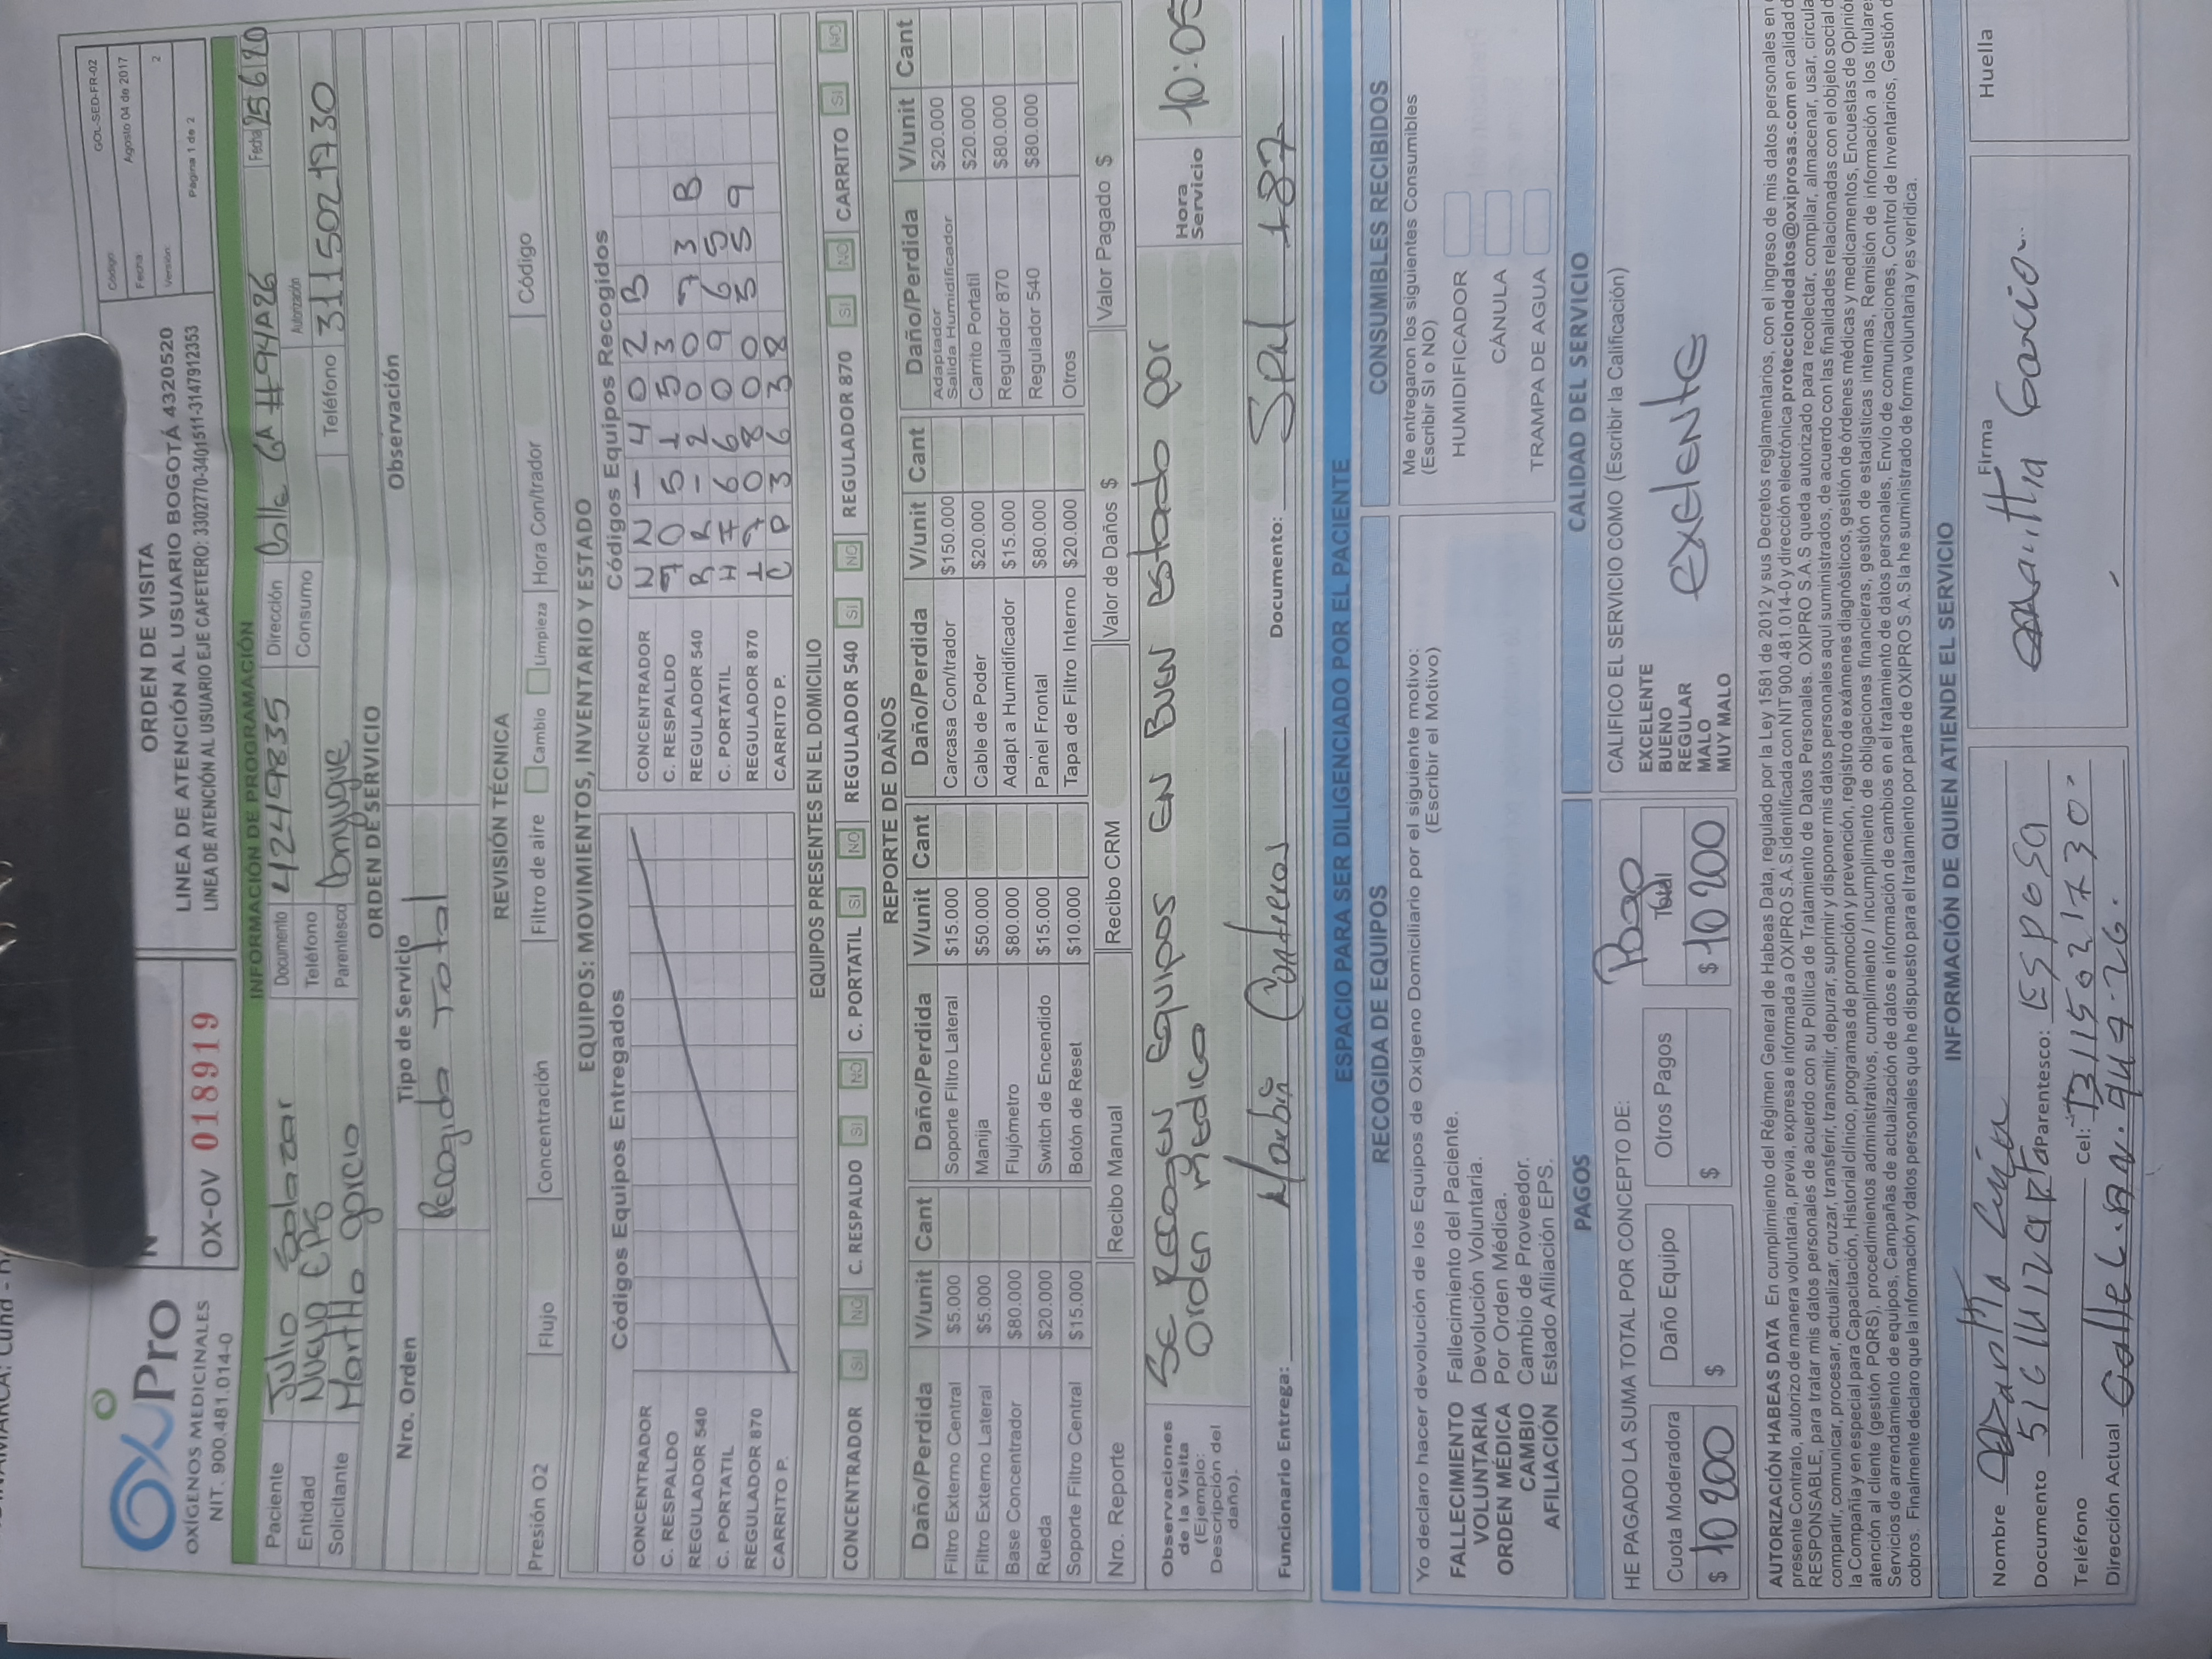 OxiPro
OXÍGENOS MEDICINALES
NIT. 900.481.014-0
OX-OV 018919
ORDEN DE VISITA
LINEA DE ATENCIÓN AL USUARIO BOGOTÁ 4320520
LINEA DE ATENCIÓN AL USUARIO EJE CAFETERO: 3302770-3401511-3147912353
Código: GOL-SED-FR-02
Fecha: Agosto 04 de 2017
Versión: 2
Página 1 de 2
INFORMACIÓN DE PROGRAMACIÓN
Paciente Julio Salazar Documento 42449835 Dirección Calle 6A #94A26 Fecha 25 6 20
Entidad Nueva EPS Teléfono Consumo Autorización
Solicitante Martha Garcia Parentesco Conyugue Teléfono 3115021730
ORDEN DE SERVICIO
Nro. Orden Tipo de Servicio Observación
Recogida Total
REVISIÓN TÉCNICA
Presión O2 Flujo Concentración Filtro de aire Cambio Limpieza Hora Con/trador Código
EQUIPOS: MOVIMIENTOS, INVENTARIO Y ESTADO
Códigos Equipos Entregados Códigos Equipos Recogidos
CONCENTRADOR CONCENTRADOR NN-402B
C. RESPALDO C. RESPALDO 705153
REGULADOR 540 REGULADOR 540 RR-20073B
C. PORTATIL C. PORTATIL H76609659
REGULADOR 870 REGULADOR 870
CARRITO P. CARRITO P. CP3638
EQUIPOS PRESENTES EN EL DOMICILIO
CONCENTRADOR SI NO C. RESPALDO SI NO C. PORTATIL SI NO REGULADOR 540 SI NO REGULADOR 870 SI NO CARRITO SI NO
REPORTE DE DAÑOS
Daño/Perdida V/unit Cant Daño/Perdida V/unit Cant Daño/Perdida V/unit Cant Daño/Perdida V/unit Cant
Filtro Externo Central $5.000 Soporte Filtro Lateral $15.000 Carcasa Con/trador $150.000 Adaptador Salida Humidificador $20.000
Filtro Externo Lateral $5.000 Manija $50.000 Cable de Poder $20.000 Carrito Portatil $20.000
Base Concentrador $80.000 Flujómetro $80.000 Adapt a Humidificador $15.000 Regulador 870 $80.000
Rueda $20.000 Switch de Encendido $15.000 Panel Frontal $80.000 Regulador 540 $80.000
Soporte Filtro Central $15.000 Botón de Reset $10.000 Tapa de Filtro Interno $20.000 Otros
Nro. Reporte Recibo Manual Recibo CRM Valor de Daños $ Valor Pagado $
Observaciones de la Visita (Ejemplo: Descripción del daño).
SE Recogen Equipos EN BUEN Estado por
Orden Medica
Hora Servicio 10:05
Funcionario Entrega: Contreras Documento: 187
ESPACIO PARA SER DILIGENCIADO POR EL PACIENTE
RECOGIDA DE EQUIPOS CONSUMIBLES RECIBIDOS
Yo declaro hacer devolución de los Equipos de Oxígeno Domiciliario por el siguiente motivo:
(Escribir el Motivo)
FALLECIMIENTO Fallecimiento del Paciente.
VOLUNTARIA Devolución Voluntaria.
ORDEN MÉDICA Por Orden Médica.
CAMBIO Cambio de Proveedor.
AFILIACIÓN Estado Afiliación EPS.
Me entregaron los siguientes Consumibles
(Escribir SI o NO)
HUMIDIFICADOR
CÁNULA
TRAMPA DE AGUA
PAGOS CALIDAD DEL SERVICIO
HE PAGADO LA SUMA TOTAL POR CONCEPTO DE: Pago
Cuota Moderadora Daño Equipo Otros Pagos Total
$ 10 200 $ $ $ 10 200
CALIFICO EL SERVICIO COMO (Escribir la Calificación)
EXCELENTE
BUENO
REGULAR
MALO
MUY MALO
exelente
AUTORIZACIÓN HABEAS DATA En cumplimiento del Régimen General de Habeas Data, regulado por la Ley 1581 de 2012 y sus Decretos reglamentarios, con el ingreso de mis datos personales en
presente Contrato, autorizo de manera voluntaria, previa, expresa e informada a OXIPRO S.A.S identificada con NIT 900.481.014-0 y dirección electrónica protecciondedatos@oxiprosas.com en calidad d
RESPONSABLE, para tratar mis datos personales de acuerdo con su Política de Tratamiento de Datos Personales. OXIPRO S.A.S queda autorizado para recolectar, compilar, almacenar, usar, circula
compartir, comunicar, procesar, actualizar, cruzar, transferir, transmitir, depurar, suprimir y disponer mis datos personales aquí suministrados, de acuerdo con las finalidades relacionadas con el objeto social d
la Compañía y en especial para Capacitación, Historial clínico, programas de promoción y prevención, registro de exámenes diagnósticos, gestión de órdenes médicas y medicamentos, Encuestas de Opinió
atención al cliente (gestión PQRS), procedimientos administrativos, cumplimiento / incumplimiento de obligaciones financieras, gestión de estadísticas internas, Remisión de información a los titulare
Servicios de arrendamiento de equipos, Campañas de actualización de datos e información de cambios en el tratamiento de datos personales, Envío de comunicaciones, Control de Inventarios, Gestión d
cobros. Finalmente declaro que la información y datos personales que he dispuesto para el tratamiento por parte de OXIPRO S.A.S la he suministrado de forma voluntaria y es verídica.
INFORMACIÓN DE QUIEN ATIENDE EL SERVICIO
Nombre Firma Garcia Huella
Documento Parentesco: Esposa
Teléfono Cel: 3115021730
Dirección Actual